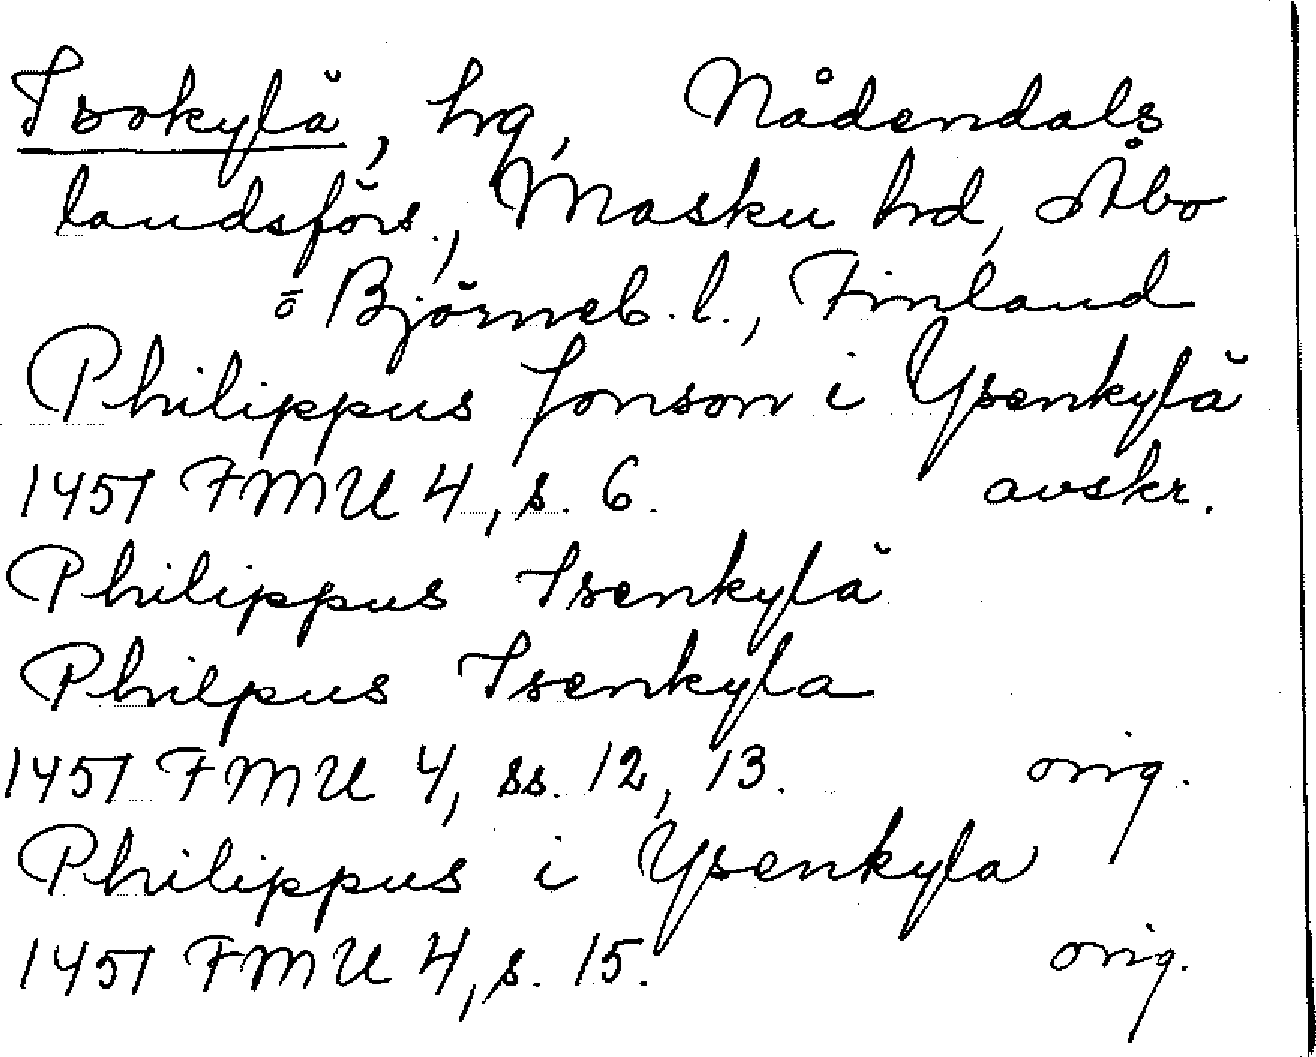 Isokylä, hg, Nådendals
landsförs., Masku hd, Åbo
o Björneb. l., Finland
Philippus Jonson i Ysenkylä
1451 FMU 4, s. 6. avskr.
Philippus Isenkylä
Philpus Isenkyla
1451 FMU 4, ss. 12, 13. orig.
Philippus i Ysenkyla
1451 FMU 4, s. 15. orig.